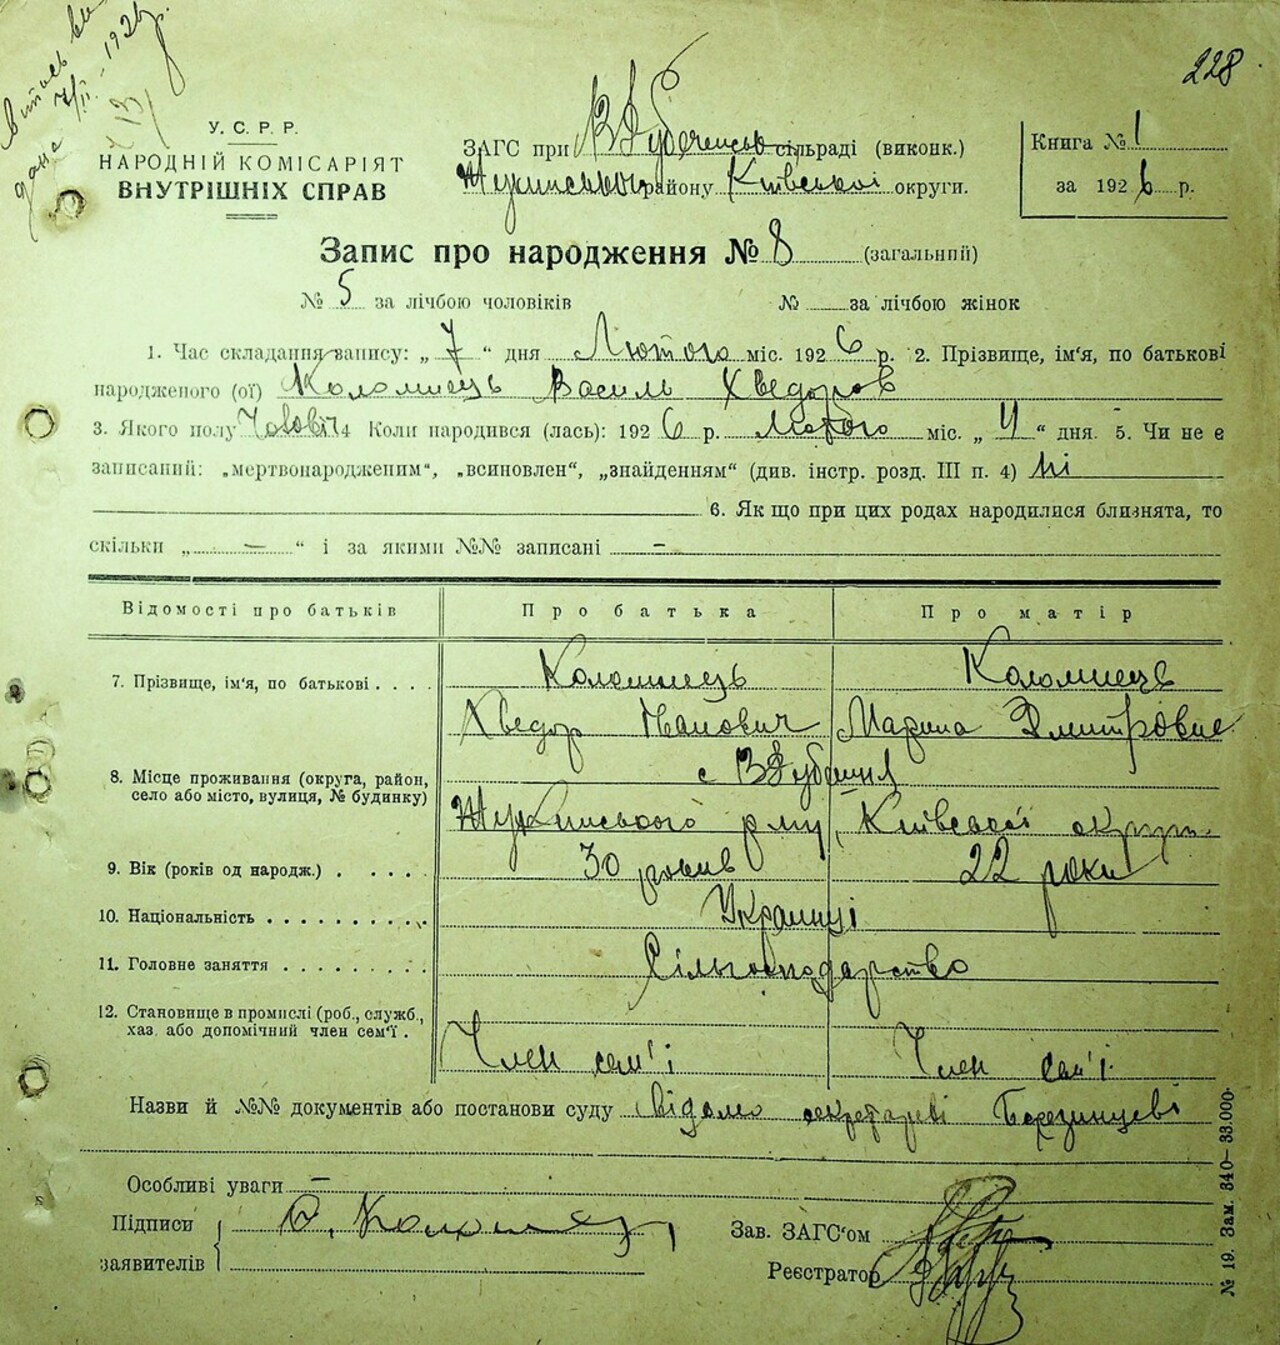 228
У. С. Р. Р.
НАРОДНІЙ КОМІСАРІЯТ
ВНУТРІШНІХ СПРАВ
ЗАГС при сільраді (виконк.)
району Київської округи.
Книга № 1
за 1926 р.
Запис про народження № 8 (загальний)
№ 5 за лічбою чоловіків № за лічбою жінок
1. Час складання запису: „ 7 “ дня Лютого міс. 1926 р. 2. Прізвище, ім'я, по батькові
народженого (ої) Коломиець Василь Хведоров
3. Якого полу Чоловіч 4 Коли народився (лась): 1926 р. Лютого міс. „ 4 “ дня. 5. Чи не є
записаний: „мертвонародженим“, „всиновлен“, „знайденням“ (див. інстр. розд. III п. 4) ні
6. Як що при цих родах народилися близнята, то
скільки „ — “ і за якими №№ записані —
Відомості про батьків Про батька Про матір
7. Прізвище, ім'я, по батькові . . . . Коломиець Коломиець
Хведор Іванович Марина Дмитровне
8. Місце проживання (округа, район, с
село або місто, вулиця, № будинку) Київської округи
9. Вік (років од народж.) . . . . 30 років 22 роки
10. Національність . . . . . . . . . . Украинці
11. Головне заняття . . . . . . . . . Сільгосподарство
12. Становище в промислі (роб., служб.,
хаз. або допомічний член сем'ї . Член сем'і Член сем'і
Назви й №№ документів або постанови суду Відомо секретареві Березинцеві
Особливі уваги —
Підписи
заявителів
Зав. ЗАГС'ом
Реєстратор
№ 19. Зам. 340—33.000